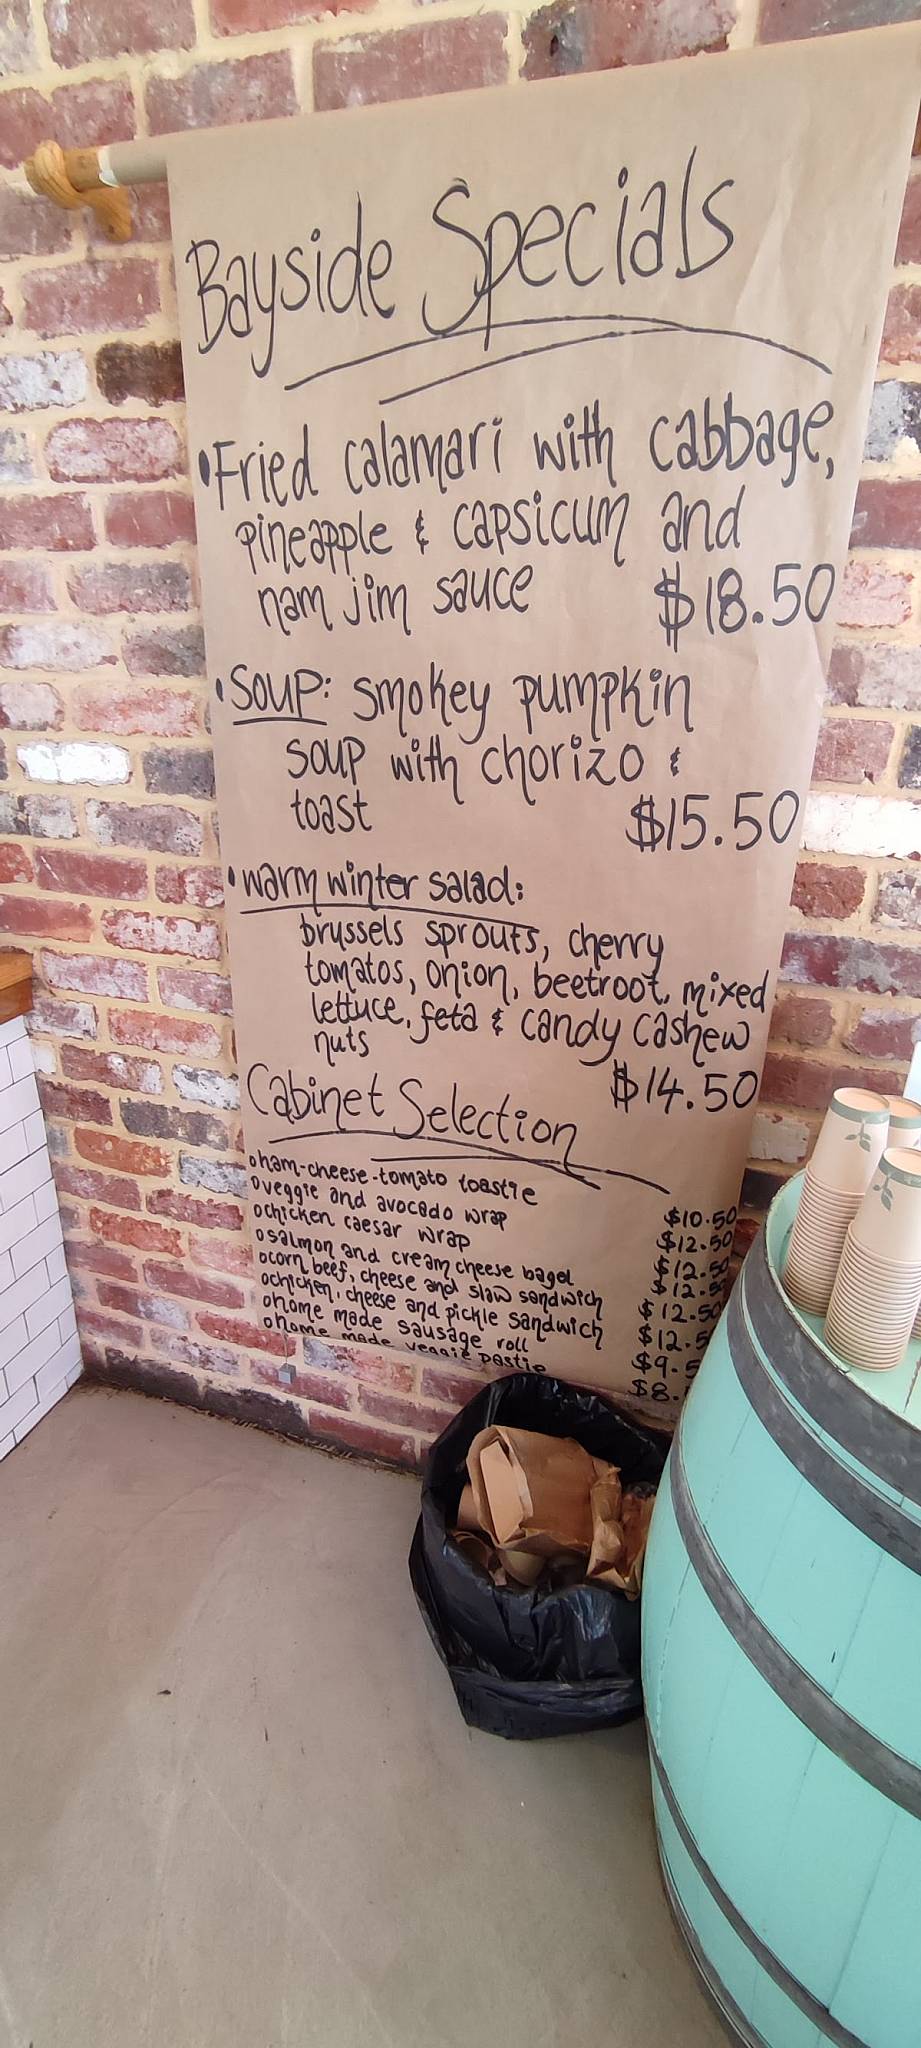 Bayside Specials
•Fried calamari with cabbage,
pineapple & capsicum and
nam jim sauce $18.50
•Soup: smokey pumpkin
soup with chorizo &
toast $15.50
•warm winter salad:
brussels sprouts, cherry
tomatos, onion, beetroot, mixed
lettuce, feta & candy cashew
nuts
$14.50
Cabinet Selection
oham-cheese-tomato toastie $10.50
oveggie and avocado wrap $12.50
ochicken caesar wrap $12.50
osalmon and cream cheese bagel $12.50
ocorn beef, cheese and slaw sandwich $12.50
ochicken, cheese and pickle sandwich $12.5
ohome made sausage roll $9.5
ohome made veggie pastie $8.